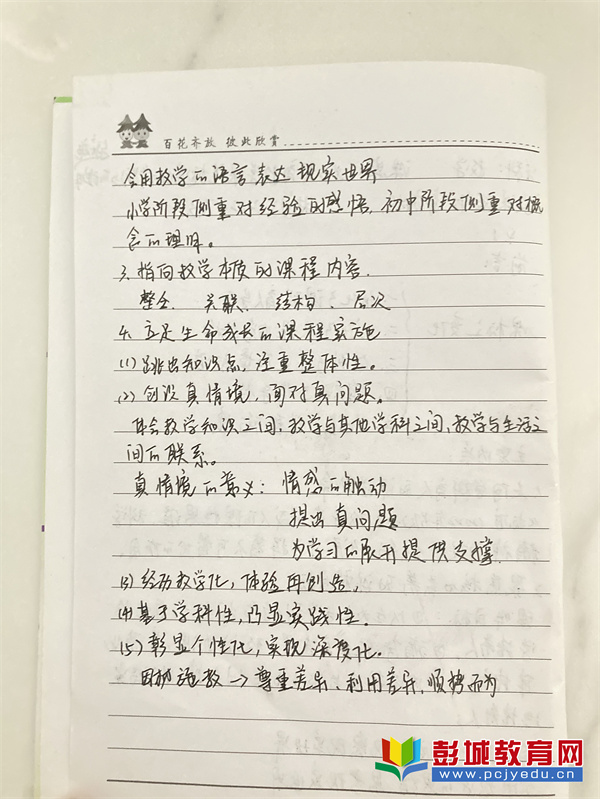 百花齐放 彼此欣赏
会用数学的语言表达现实世界
小学阶段侧重对经验的感悟,初中阶段侧重对概
念的理解。
3.指向数学本质的课程内容.
整合、关联、结构、层次
4.立足生命成长的课程实施
(1)跳出知识点,注重整体性。
(2)创设真情境,面对真问题。
体会数学知识之间,数学与其他学科之间,数学与生活之
间的联系。
真情境的意义:情感的触动
提出真问题
为学习的展开提供支撑.
(3)经历数学化,体验再创造.
(4)基于学科性,凸显实践性.
(5)彰显个性化,实现深度化.
因材施教→尊重差异、利用差异、顺势而为
彭城教育网
www.pcjyedu.cn